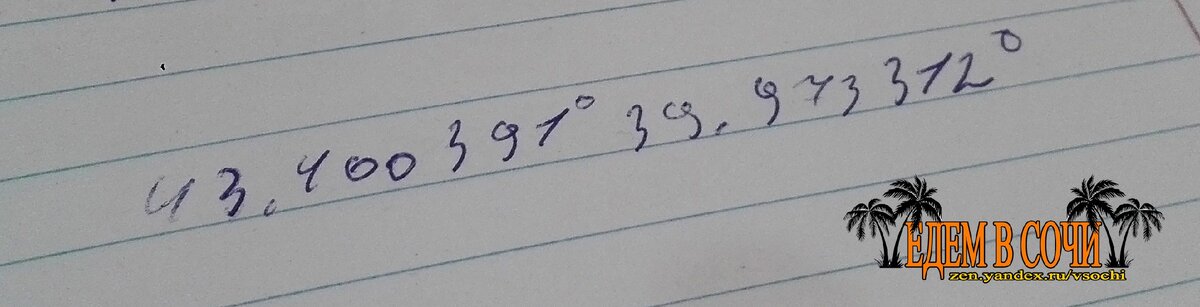 43.400391° 39.973312°
ЕДЕМ В СОЧИ
zen.yandex.ru/vsochi